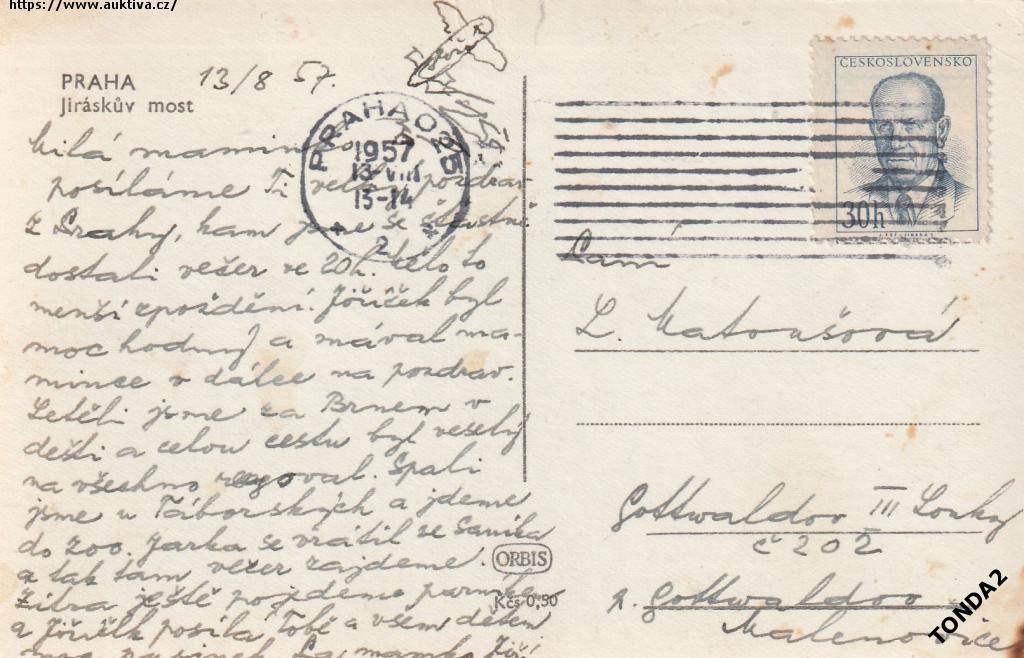 https://www.auktiva.cz/
PRAHA
Jiráskův most
13/8 57.
Milá maminko
posíláme Ti velký pozdrav
z Prahy, kam jsme se šťastně
dostali večer ve 20h. Mělo to
menší zpoždění. Jiříček byl
moc hodný a mával ma-
mince v dálce na pozdrav.
Letěli jsme za Brnem v
dešti a celou cestu byl veselý
na všechno reagoval. Spali
jsme u Táborských a jdeme
do zoo. Jarka se vrátil ze
a tak tam večer zajdeme.
Zítra ještě pojedeme
a posílá Tobě a všem dětem
maminka Jiří
PRAHA 025
1957
13.VIII
13-14
2
ČESKOSLOVENSKO
30h
Paní
L. Matoušová
Gottwaldov III Louky
č 202
p. Gottwaldov
Malenovice
ORBIS
Kčs 0,50
TONDA2